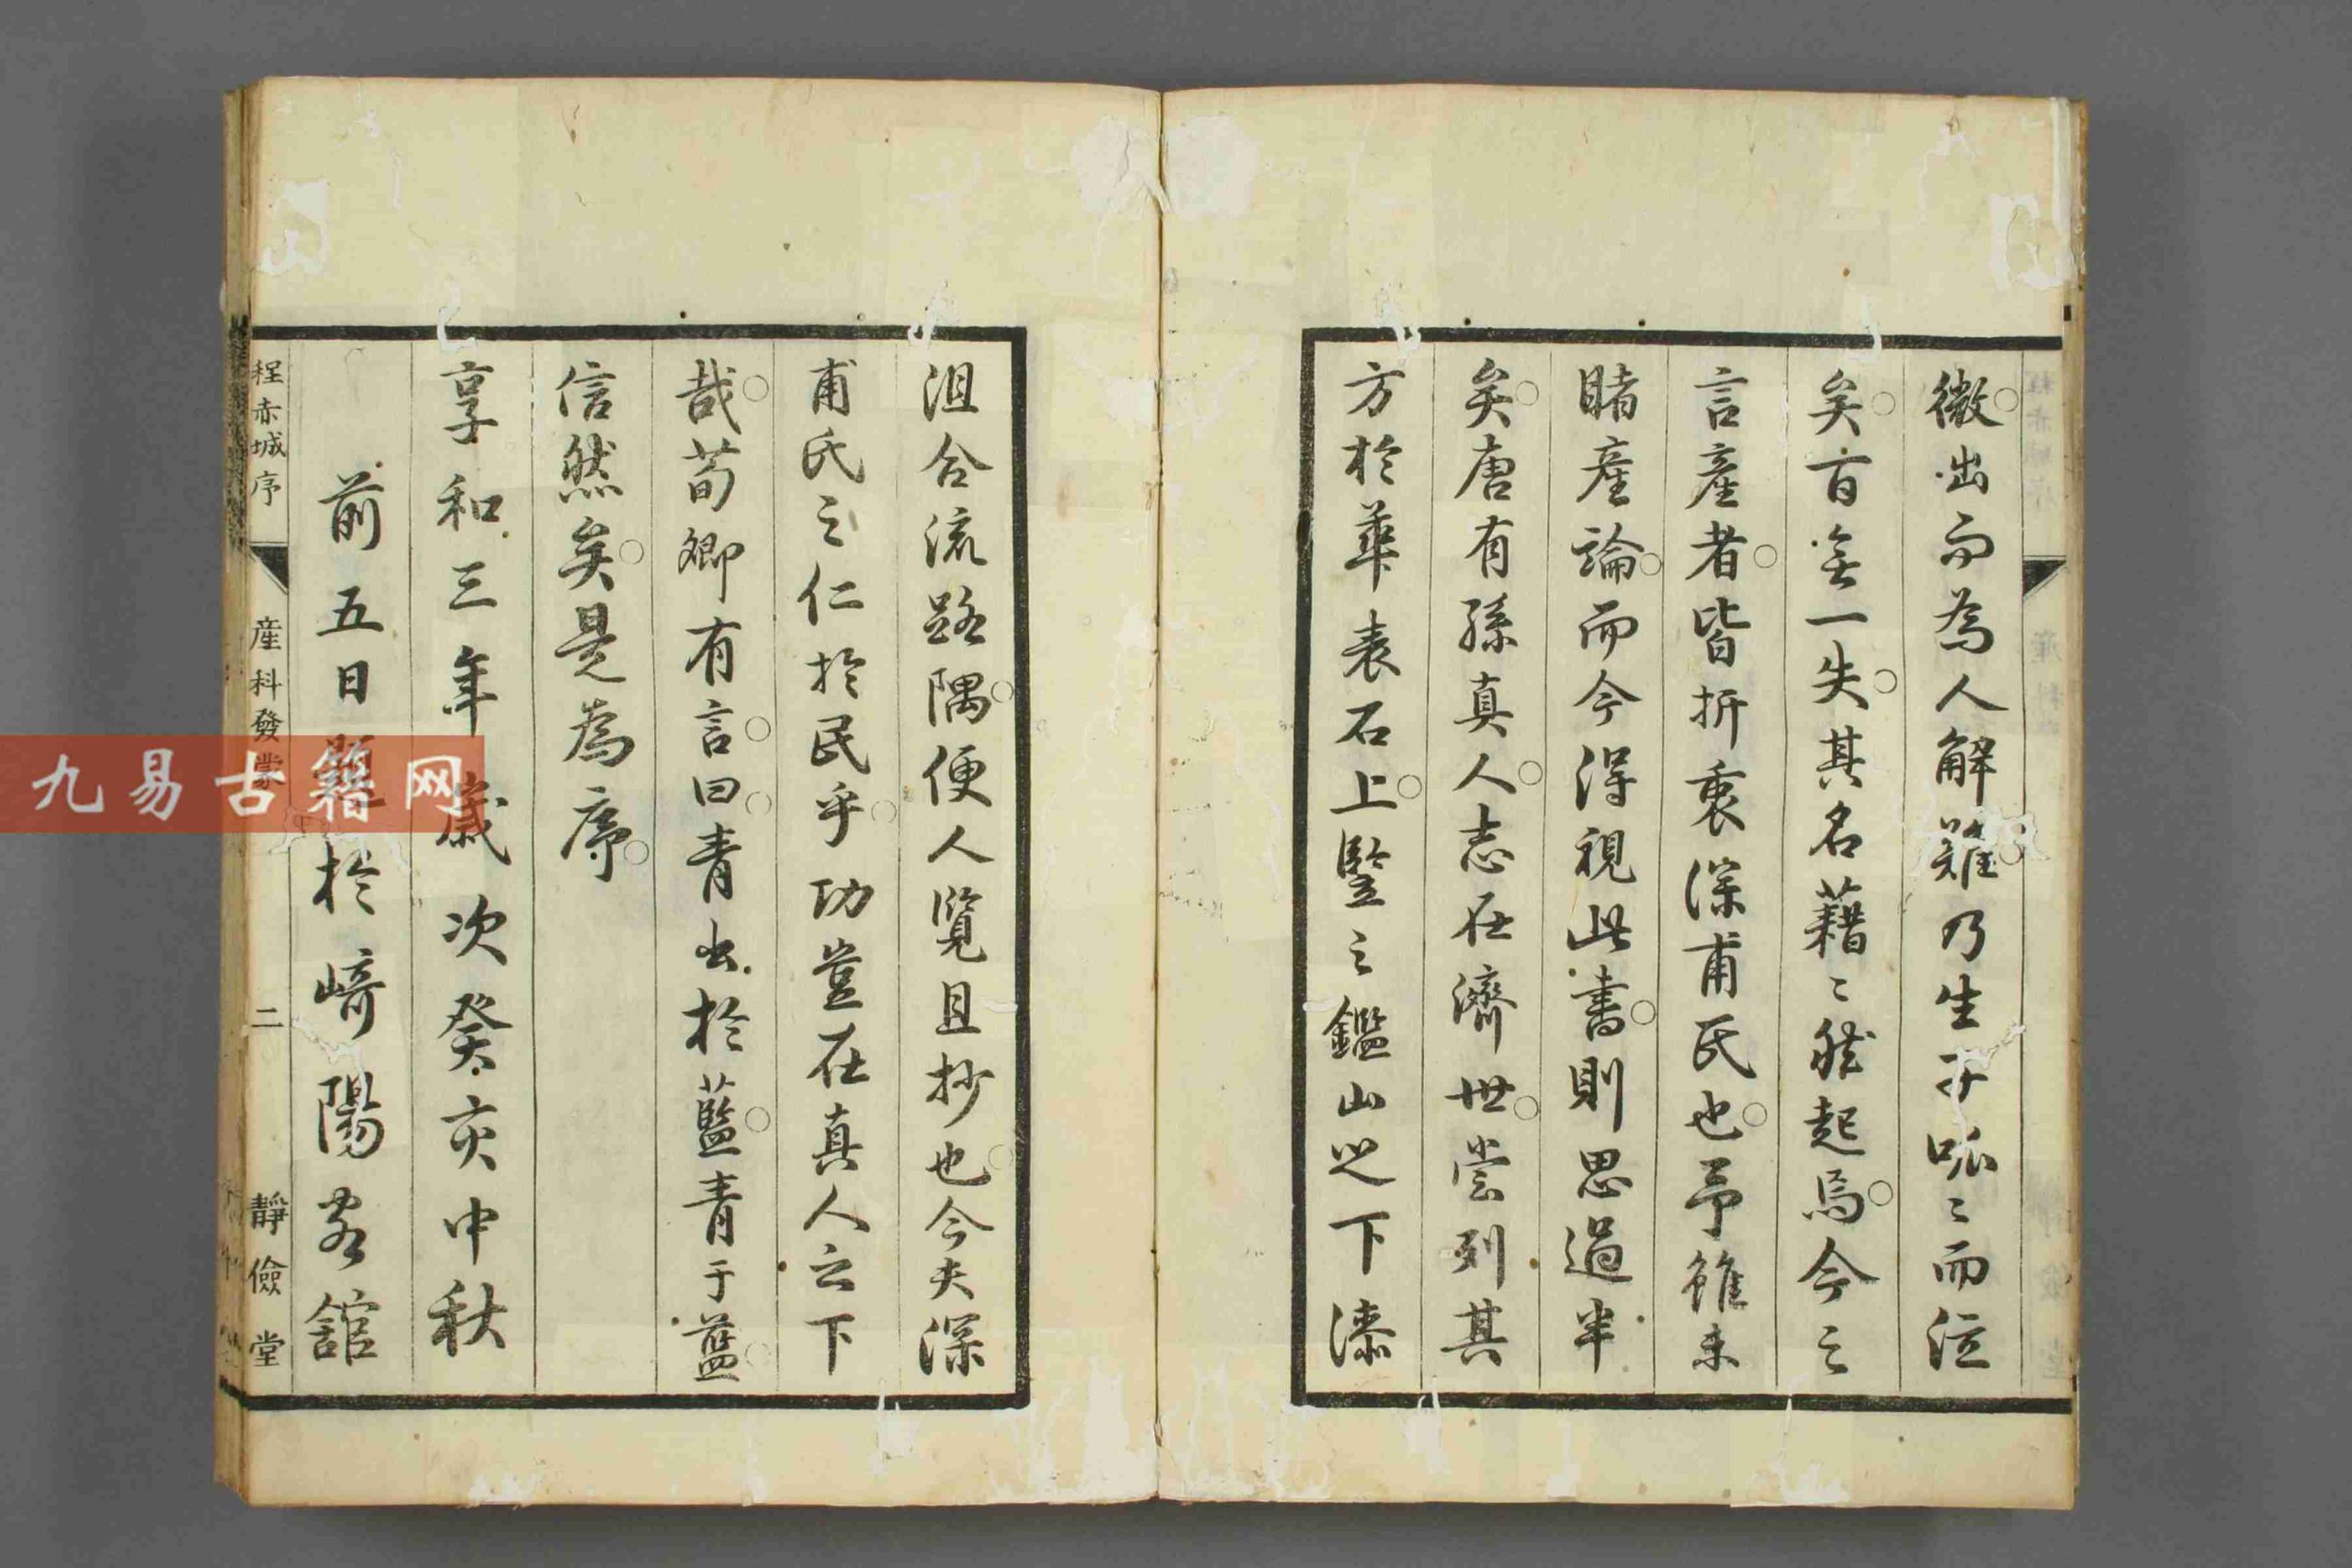 微出而為人解難乃生子呱〻而泣
矣百無一失其名藉〻然起焉今之
言產者皆折衷深甫氏也予雖未
睹產論而今得視此書則思過半
矣唐有孫真人志在濟世嘗列其
方於華表石上豎之鑑山之下漆
沮合流路隅便人覽且抄也今夫深
甫氏之仁於民乎功豈在真人之下
哉荀卿有言曰青出於藍青于藍
信然矣是為序
享和三年歲次癸亥中秋
前五日題於崎陽客館
程赤城序 產科發蒙 二 靜儉堂
九易古籍网